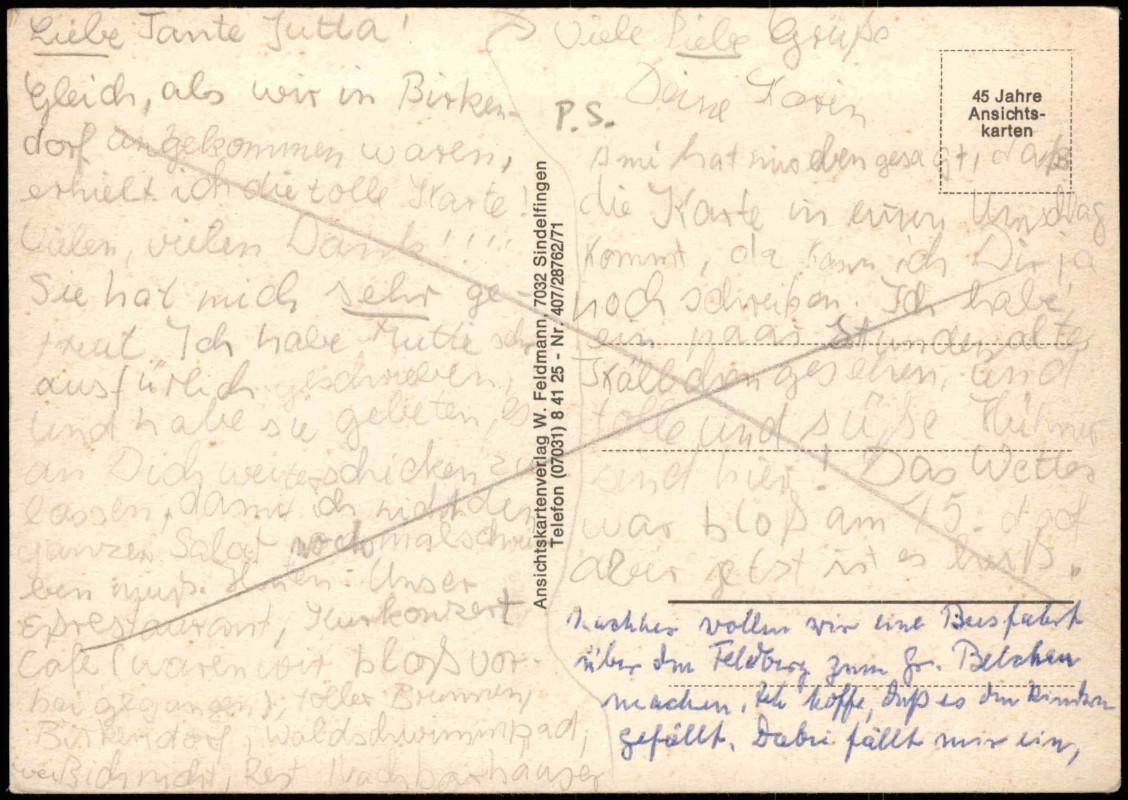 Liebe Tante Jutta!
Gleich, als wir in Birken-
dorf angekommen waren,
erhielt ich die tolle Karte!
Vielen, vielen Dank!!!!
Sie hat mich sehr ge-
freut. Ich habe Mutti sehr
ausfürlich geschrieben,
und habe sie gebeten, es
an Dich weiterschicken zu
lassen, damit ich nicht den
ganzen Salat nochmalschrei
ben muß. Unser
Kurkonzert
Café (waren wir bloß vor-
bei gegangen), toller Brunnen,
Birkendorf, Waldschwimmbad,
weiß ich nicht, Rest Nachbarhäuser
Viele liebe Grüße
Deine Karin
P.S.
Omi hat uns eben gesagt, daß
die Karte in einen Umschlag
kommt, da kann ich Dir ja
noch schreiben. Ich habe
ein paar Stunden alte
Kälbchen gesehen, und
tolle und süße Hühner
sind hier. Das Wetter
war bloß am 15. doof
aber jetzt ist es heiß.
Nachher wollen wir eine Busfahrt
über den Feldberg zum Gr. Belchen
machen. Ich hoffe, daß es den Kindern
gefällt. Dabei fällt mir ein,
45 Jahre
Ansichts-
karten
Ansichtskartenverlag W. Feldmann, 7032 Sindelfingen
Telefon (07031) 8 41 25 - Nr. 407/28762/71